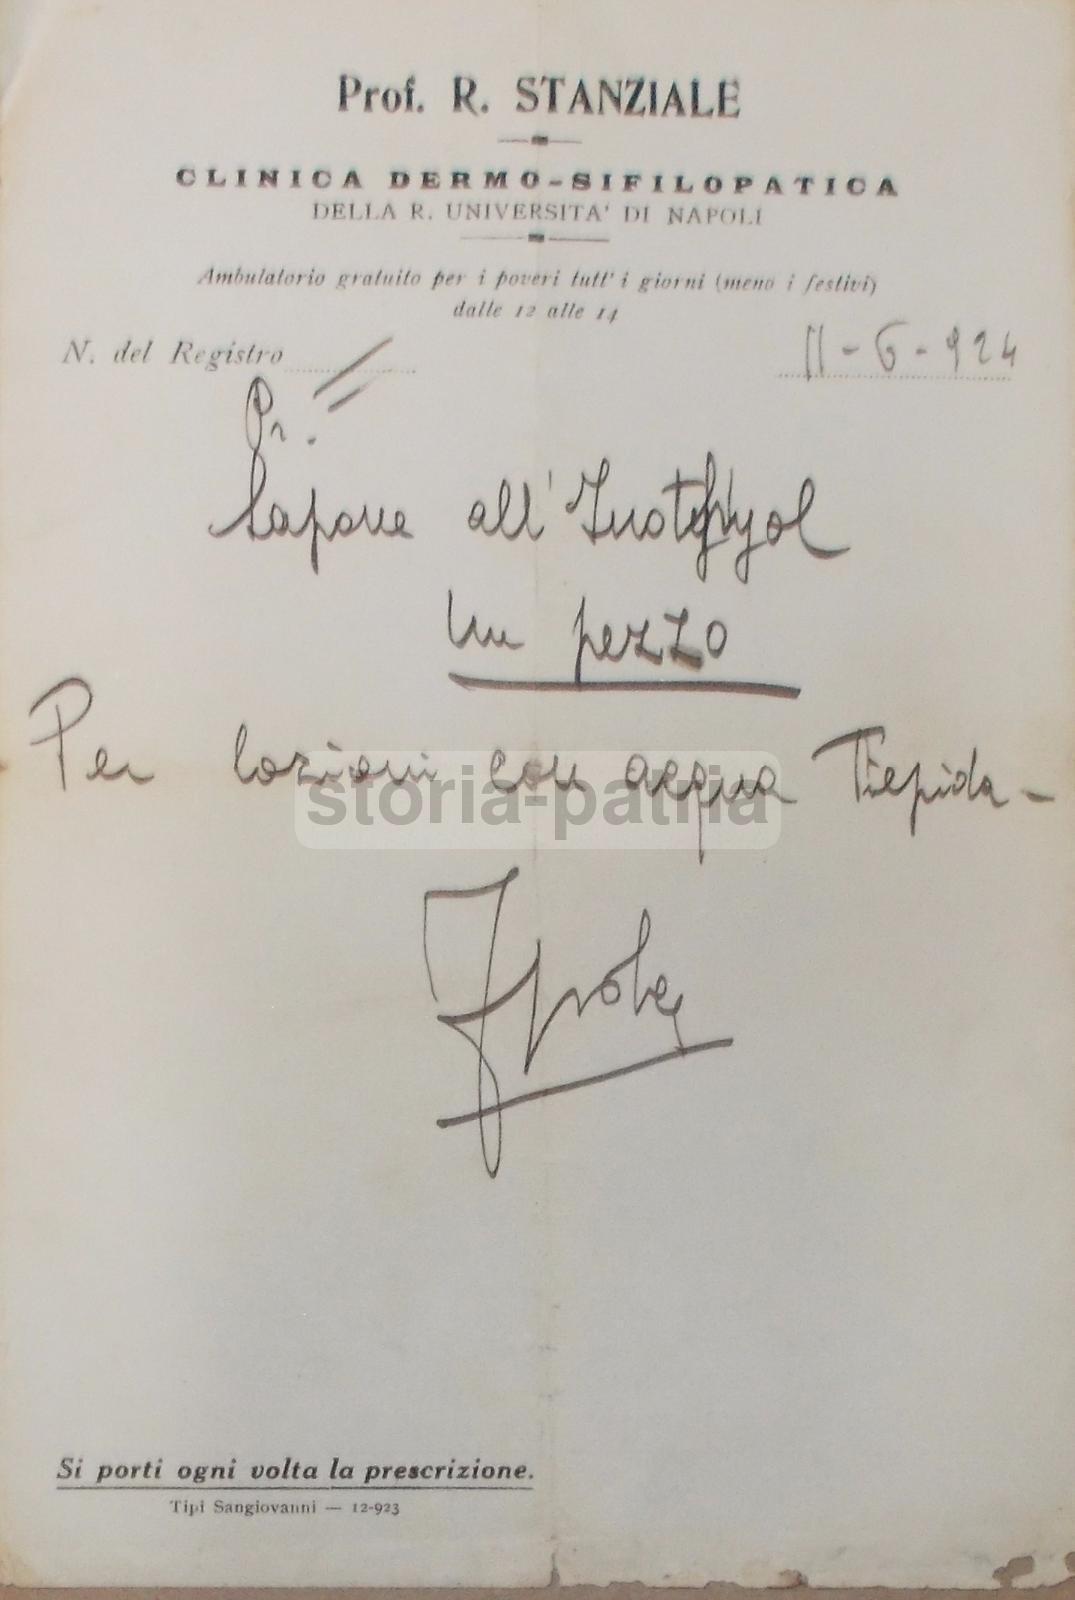 Prof. R. STANZIALE
CLINICA DERMO-SIFILOPATICA
DELLA R. UNIVERSITA' DI NAPOLI
Ambulatorio gratuito per i poveri tutt' i giorni (meno i festivi)
dalle 12 alle 14
N. del Registro
11-6-924
Pr.
Sapone all'
un pezzo
Per lozioni con acqua Tiepida -
storia-patria
Si porti ogni volta la prescrizione.
Tipi Sangiovanni — 12-923